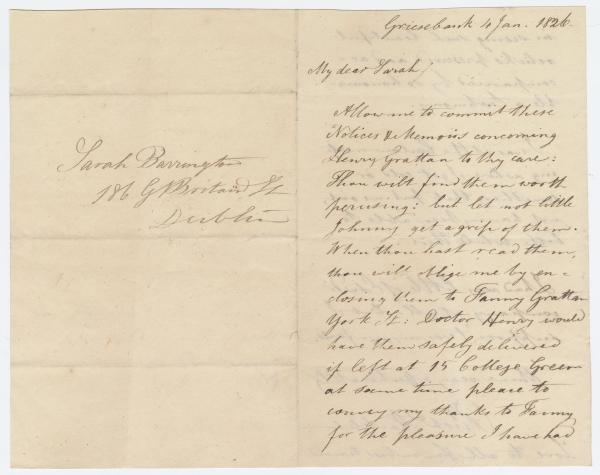 Sarah Barrington
186 Gt Britain St
Dublin
Griesebank 4 Jan. 1826
My dear Sarah,
Allow me to commit these
Notices & Memoirs concerning
Henry Grattan to thy care:
Thou wilt find them worth
perusing: but let not little
Johnny get a grip of them.
When thou hast read them,
thou wilt oblige me by en=
closing them to Fanny Grattan
York St: Doctor Henry would
have them safely delivered
if left at 15 College Green
at same time please to
convey my thanks to Fanny,
for the pleasure I have had